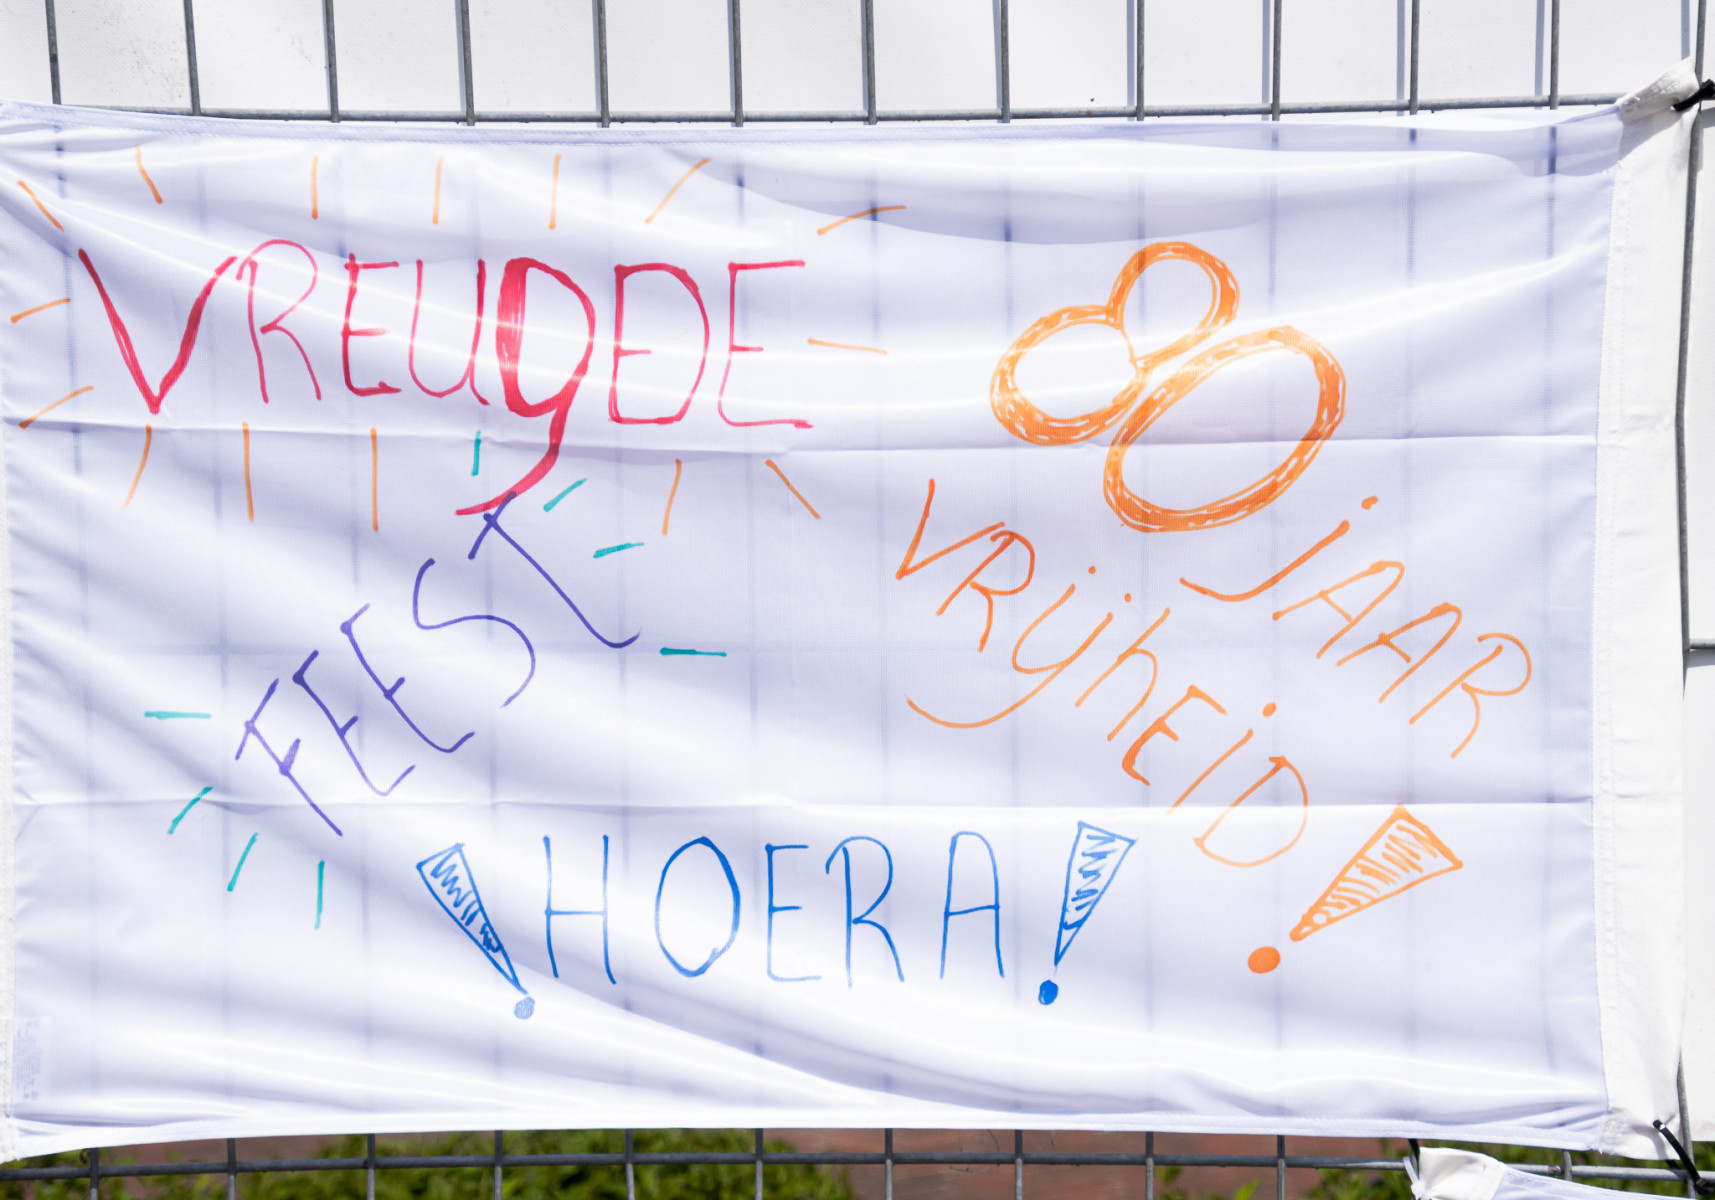 VREUgDE
80 JAAR
VRijHEiD!
FEEST
¡HOERA!